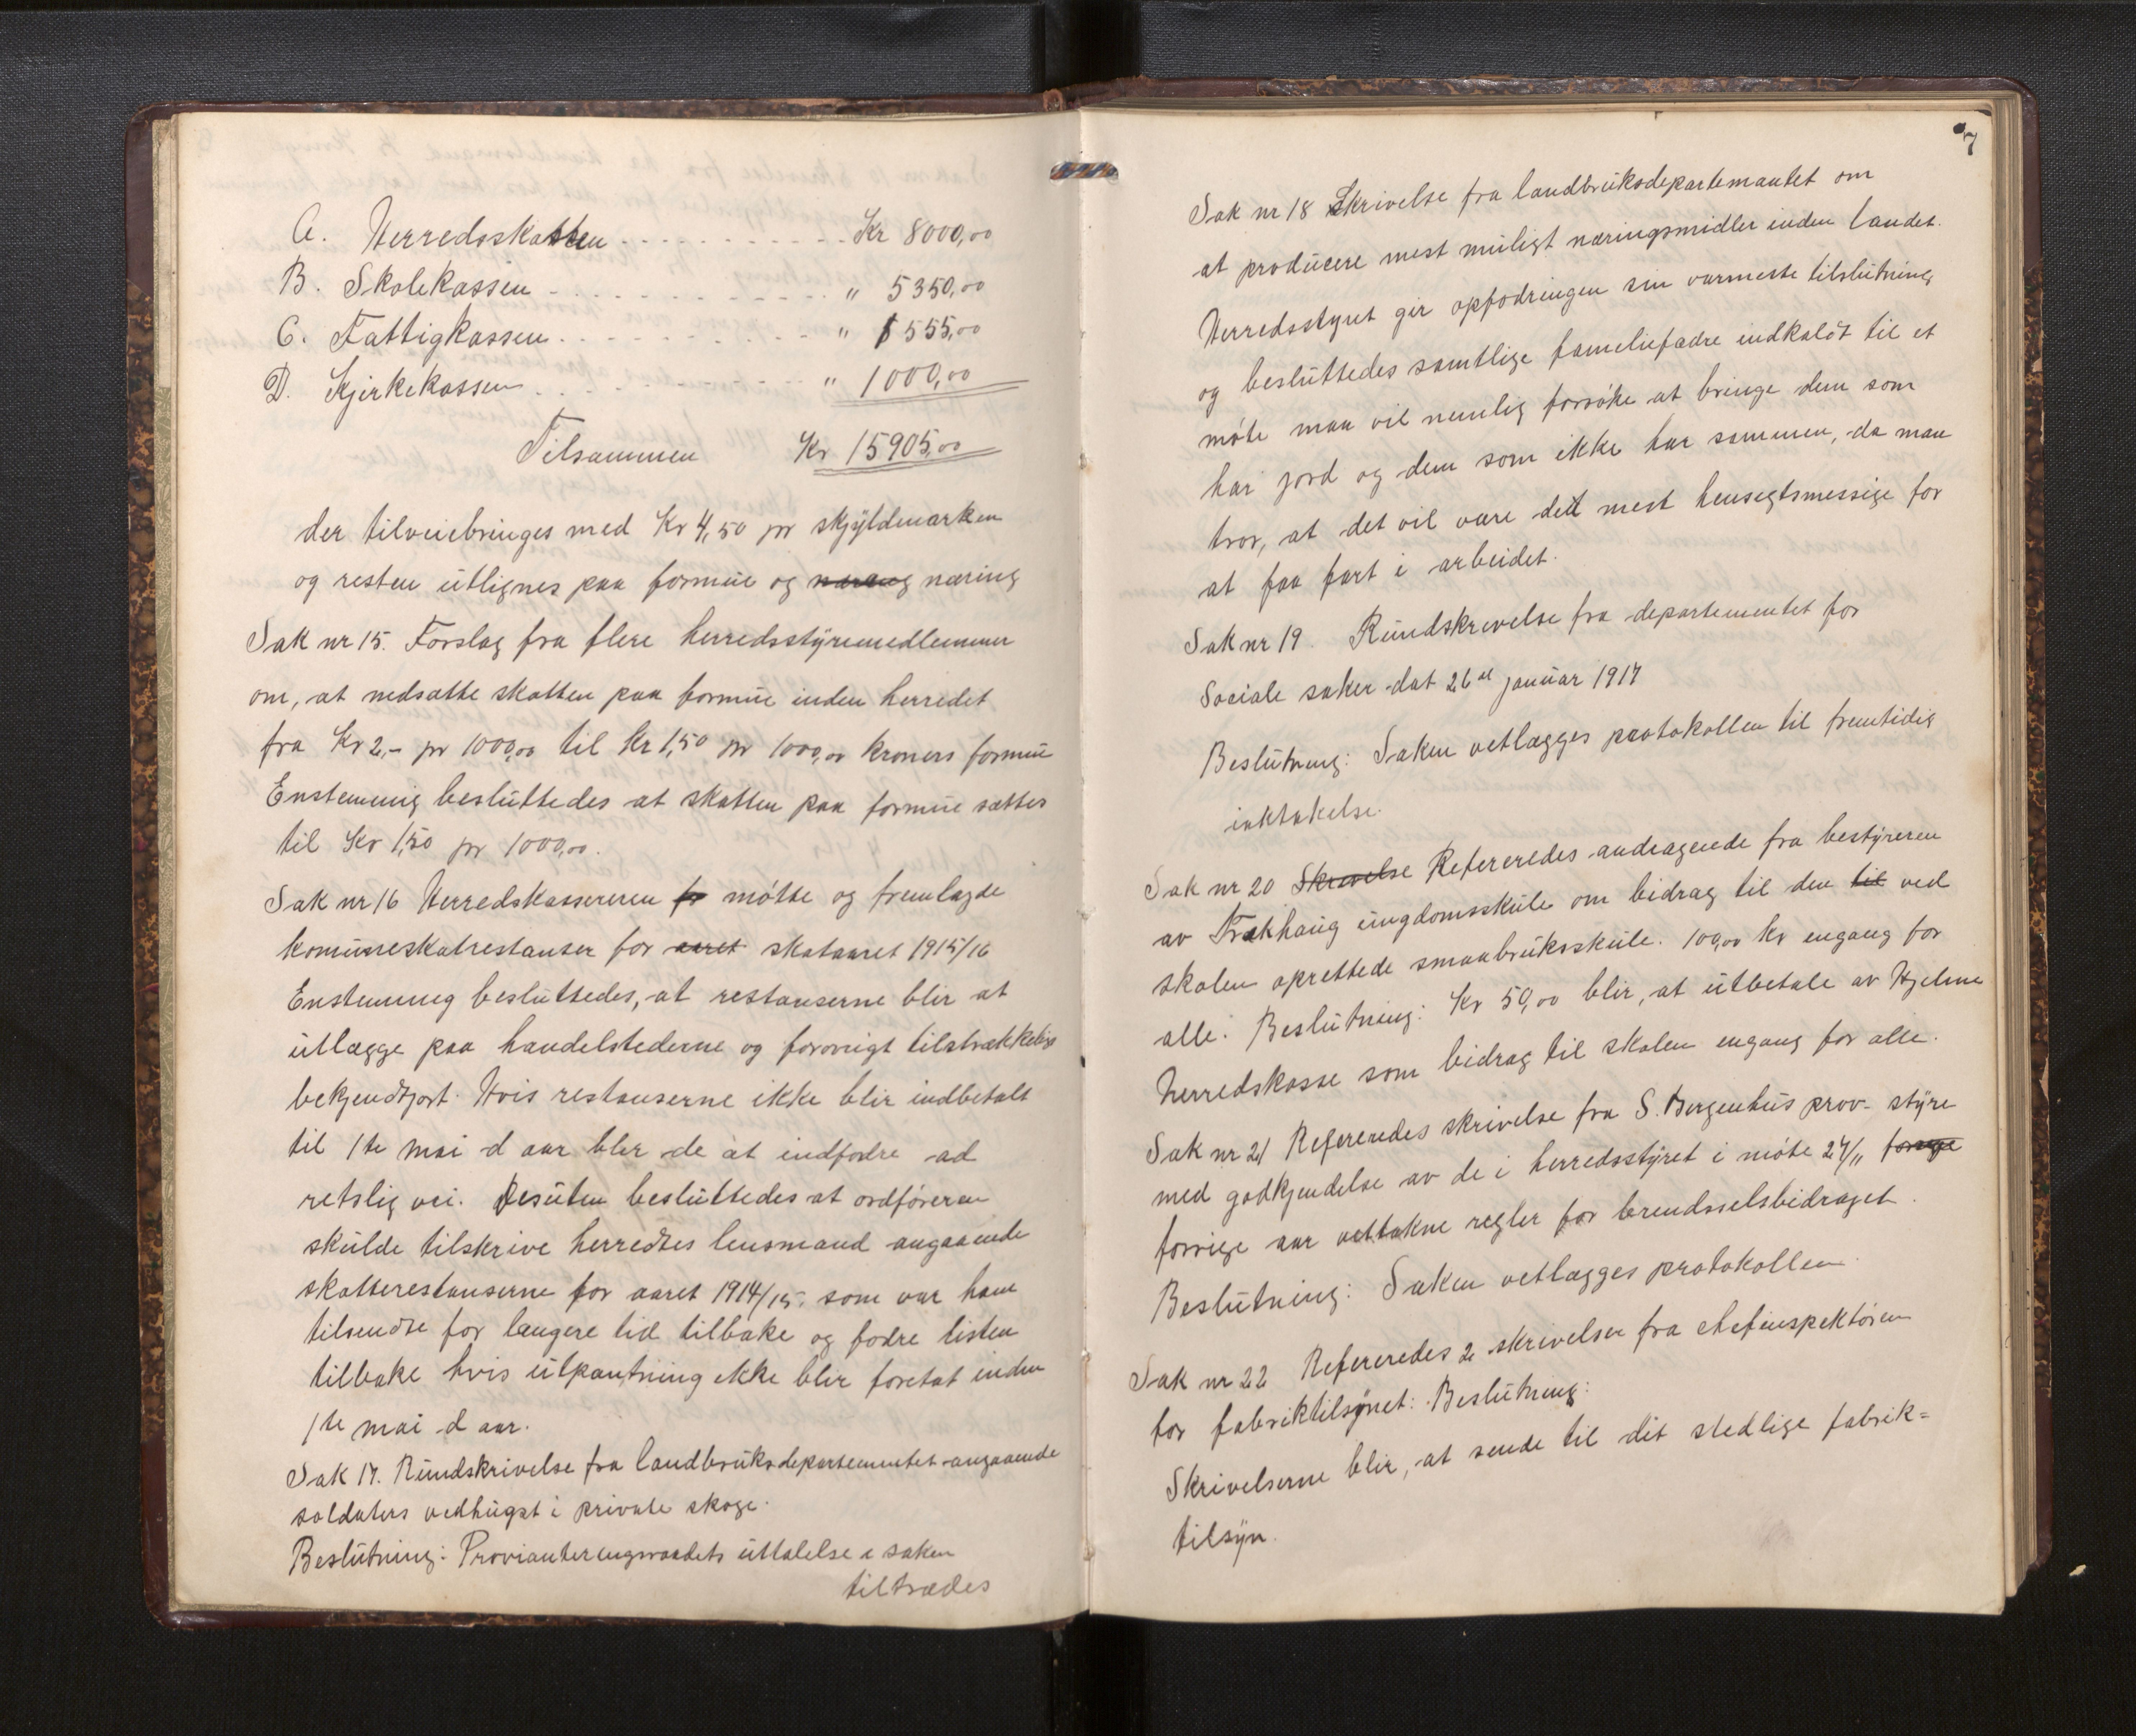 A. Herredskassen . . . . . . . . . . . Kr 8000,00
B. Skolekassen . . . . . . . . . . . . " 5350,00
C. Fattigkassen . . . . . . . . . . . " 1555,00
D. Kjerkekassen . . . . . . . . . . . " 1000,00
Tilsammen Kr 15905,00
der tilveiebringes med Kr 4,50 pr skyldmarken
og resten utlignes paa formue og næring
Sak nr 15. Forslag fra flere herredsstyremedlemmer
om, at nedsætte skatten paa formue inden herredet
fra Kr 2,- pr 1000,00 til Kr 1,50 pr 1000,00 kroners formue
Enstemmig besluttedes at skatten paa formue sættes
til Kr 1,50 pr 1000,00.
Sak nr 16 Herredskassereren møtte og fremlagde
komuneskatrestanser for aaret skataaret 1915/16
Enstemmig besluttedes, at restanserne blir at
utlægge paa handelstederne og forøvrigt tilstrækkelig
bekjendtgjort. Hvis restanserne ikke blir indbetalt
til 1te mai d aar blir de at indfodre ad
retslig vei. Desuten besluttedes at ordføreren
skulde tilskrive herredets lensmand angaaende
skatterestanserne for aaret 1914/15, som var ham
tilsendte for længere tid tilbake og fodre listen
tilbake hvis utpantning ikke blir foretat inden
1te mai d aar.
Sak 17. Rundskrivelse fra landbruksdepartementet angaaende
soldaters vedhugst i private skoge.
Beslutning: Provianteringsraadets uttalelse i saken
tiltrædes
7
Sak nr 18 Skrivelse fra landbruksdepartemantet om
at producere mest muligt næringsmidler inden landet.
Herredsstyret gir opfodringen sin varmeste tilslutning
og besluttedes samtlige fameliefædre indkaldt til et
møte man vil nemlig forsøke at bringe dem som
har jord og dem som ikke har sammen, da man
tror, at det vil være det mest hensegtsmessige for
at faa fart i arbeidet.
Sak nr 19. Rundskrevelse fra departementet for
Sociale saker dat 26de januar 1917
Beslutning: Saken vetlægges protokollen til fremtidig
iaktakelse.
Sak nr 20 Skrevelse Refereredes andragende fra bestyreren
av Frækhaug ungdomsskule om bidrag til den til ved
skolen oprettede smaabruksskule. 100,00 kr engang for
alle. Beslutning: Kr 50,00 blir, at utbetale av Hjelme
herredskasse som bidrag til skolen engang for alle.
Sak nr 21 Refereredes skrivelse fra S. Bergenhus prov- styre
med godkjendelse av de i herredsstyret i møte 27/11 forrige
forrige aar vettakne regler for brendselsbidraget.
Beslutning: Saken vetlægges protokollen.
Sak nr 22 Refereredes 2 skrivelser fra chefinspektøren
for fabriktilsynet: Beslutning:
Skrivelserne blir, at sende til det stedlige fabrik=
tilsyn.